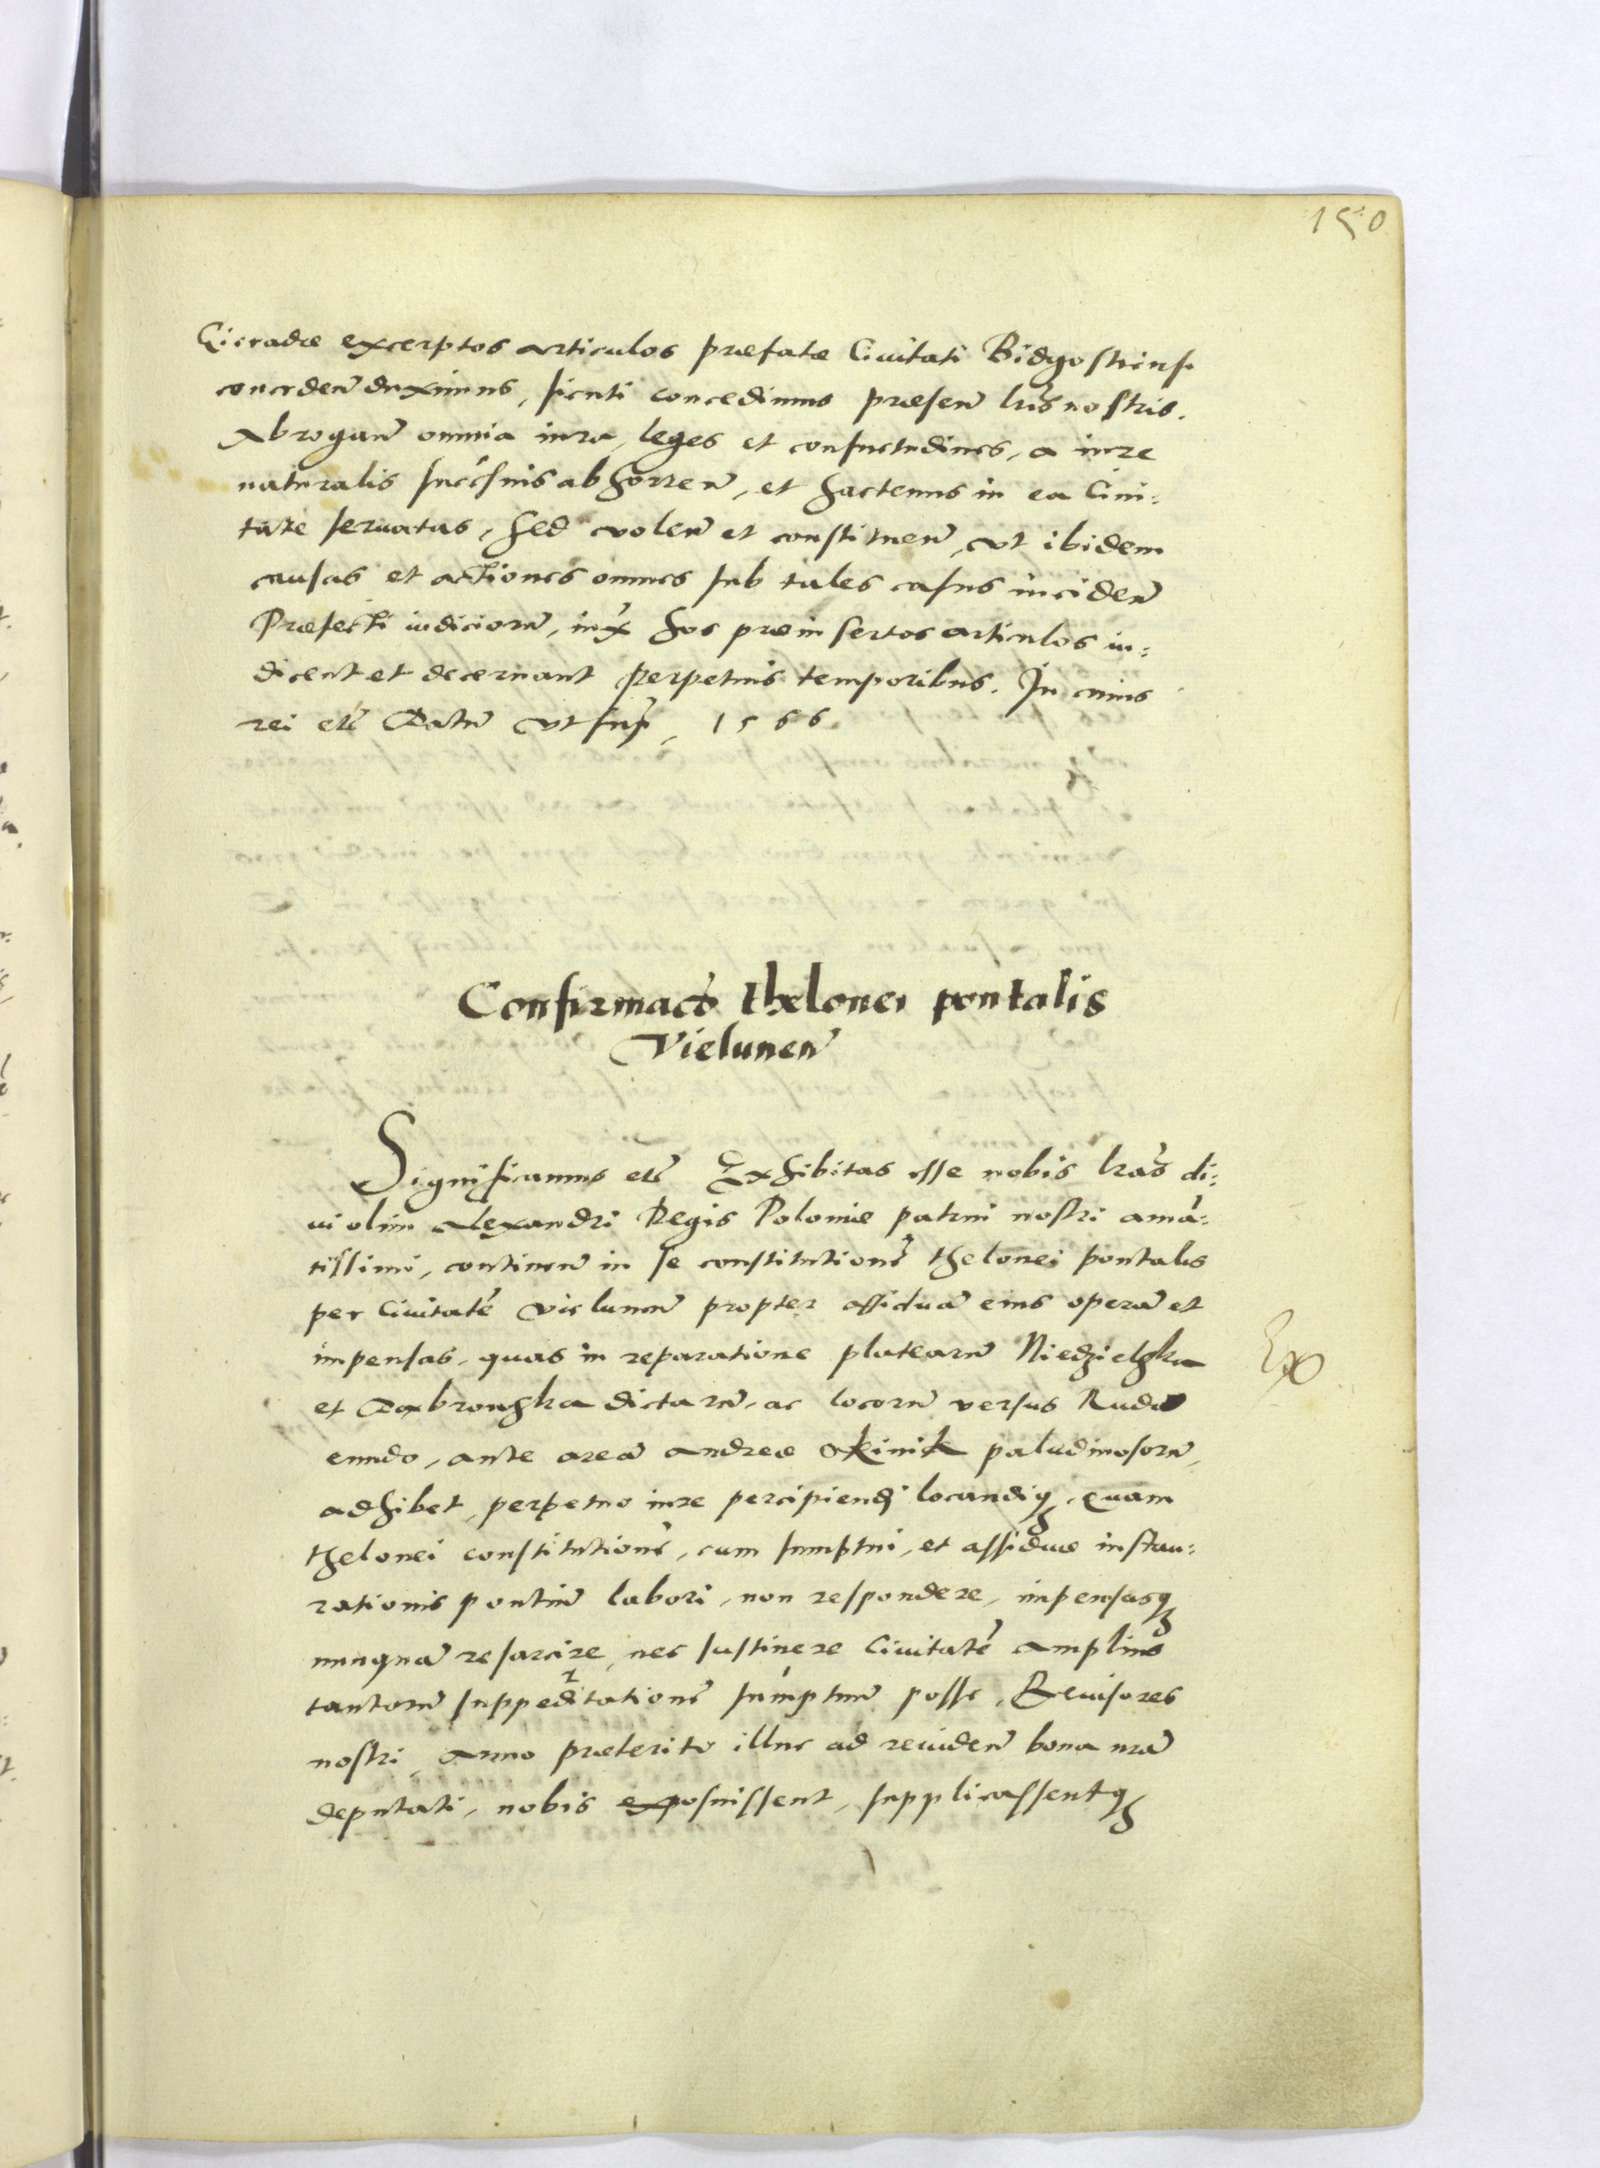 150
Gieradiæ excerptos articulos præfatæ Ciuitati Bidgostiensi
conceden̄ duximus, sicuti concedimus præsen̄ lr̄is nostris.
Abrogan̄ omnia iura, leges et consuetudines, a iure
naturalis succ̄sīnis abhorren̄, et hactenus in ea Ciui:
tate seruatas, sed volen̄ et constituen̄, vt ibidem
causas et actiones omnes sub tales casus inciden̄
Præfecti iudiciorū, iux̄ hos præinsertos articulos iu:
dicent et decernant perpetuis temporibus. In cuius
rei etc̄ Datū vt sup̄, 1566.
Confirmac̄o thelonei pontalis
Vielunen̄
Significamus etc̄ Exhibitas esse nobis lr̄as di:
ui olim Alexandri Regis Poloniæ patrui nostri amā:
tissimi, continen̄ in se constitutionē thelonei pontalis
per Ciuitatē vielunen̄ propter assiduā eius operā et
impensas, quas in reparatione platearū Niedzielska
et Dabrowska dictarū, ac locorū versus Ruda
eundo, ante areā Andreæ Okinik paludinosorū,
adhibet, perpetuo iure percipiendi locandiq, Quam
thelonei constitutionē, cum sumptui, et assiduæ instau:
rationis pontiū labori, non respondere, impensasq
nunquā resarcire, nec sustinere Ciuitatē amplius
tantorū suppeditationē sumptuū posse, Reuisores
nostri, anno præterito illuc ad reuiden̄ bona nr̄a
deputati, nobis exposuissent, supplicassentq
Ex